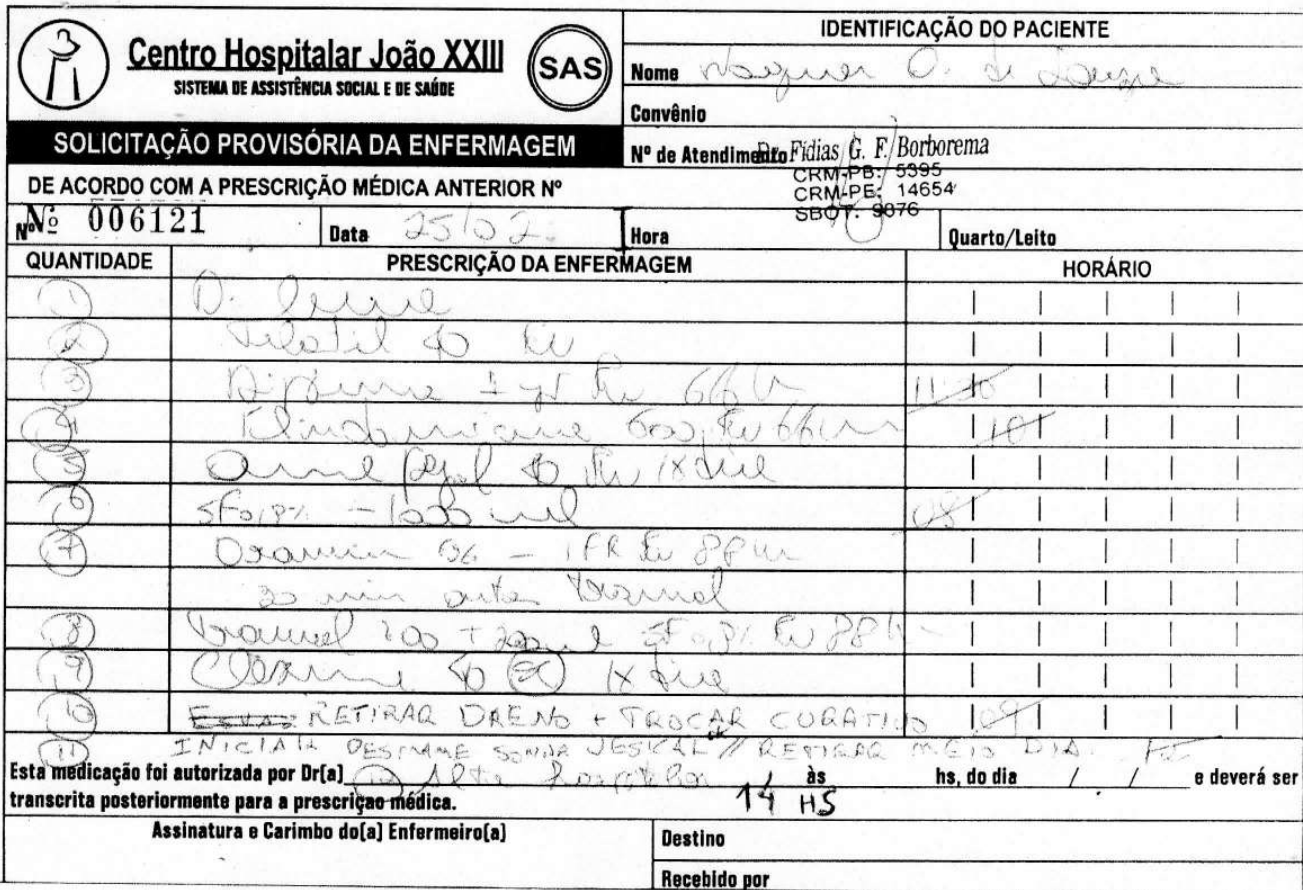 Centro Hospitalar João XXIII
SISTEMA DE ASSISTÊNCIA SOCIAL E DE SAÚDE
SAS
SOLICITAÇÃO PROVISÓRIA DA ENFERMAGEM
DE ACORDO COM A PRESCRIÇÃO MÉDICA ANTERIOR Nº
IDENTIFICAÇÃO DO PACIENTE
Nome Wagner O. de Souza
Convênio
Nº de Atendimento
Dr. Fídias G. F. Borborema
CRM-PB: 5395
CRM-PE: 14654
SBOT: 9876
Nº 006121 Data 25/02 Hora Quarto/Leito
QUANTIDADE PRESCRIÇÃO DA ENFERMAGEM HORÁRIO
1 D. Livre
2 Tilatil 40 EV
3 Dipirona EV 6/6h
4 Clindamicina 600 EV 6/6h
5 40 EV 1X dia
6 SF 0,9% - 1000 ml 08
7 Dramin B6 - EV 8/8h
30 min antes tramal
8 Tramal 100 + SF 0,9% EV 8/8h
9 Clexane 40 SC 1X dia
10 RETIRAR DRENO + TROCAR CURATIVO 09
11 INICIAR DESMAME SONDA VESICAL // RETIRAR MEIO DIA
12 Alta hospitalar
14 HS
Esta medicação foi autorizada por Dr(a) às hs, do dia / / e deverá ser
transcrita posteriormente para a prescrição médica.
Assinatura e Carimbo do(a) Enfermeiro(a)
Destino
Recebido por